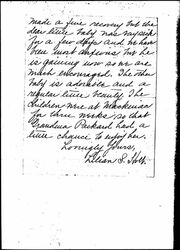 made a fine recovery but the
dear little baby was very sick
for a few days and we have
been most anxious but he
is gaining now so we are
much encouraged. The other
baby is adorable and a
regular little beauty. The
children were at Mackinac
for three weeks so that
Grandma Packard had a
little chance to enjoy her.
Lovingly yours,
Lilian S.